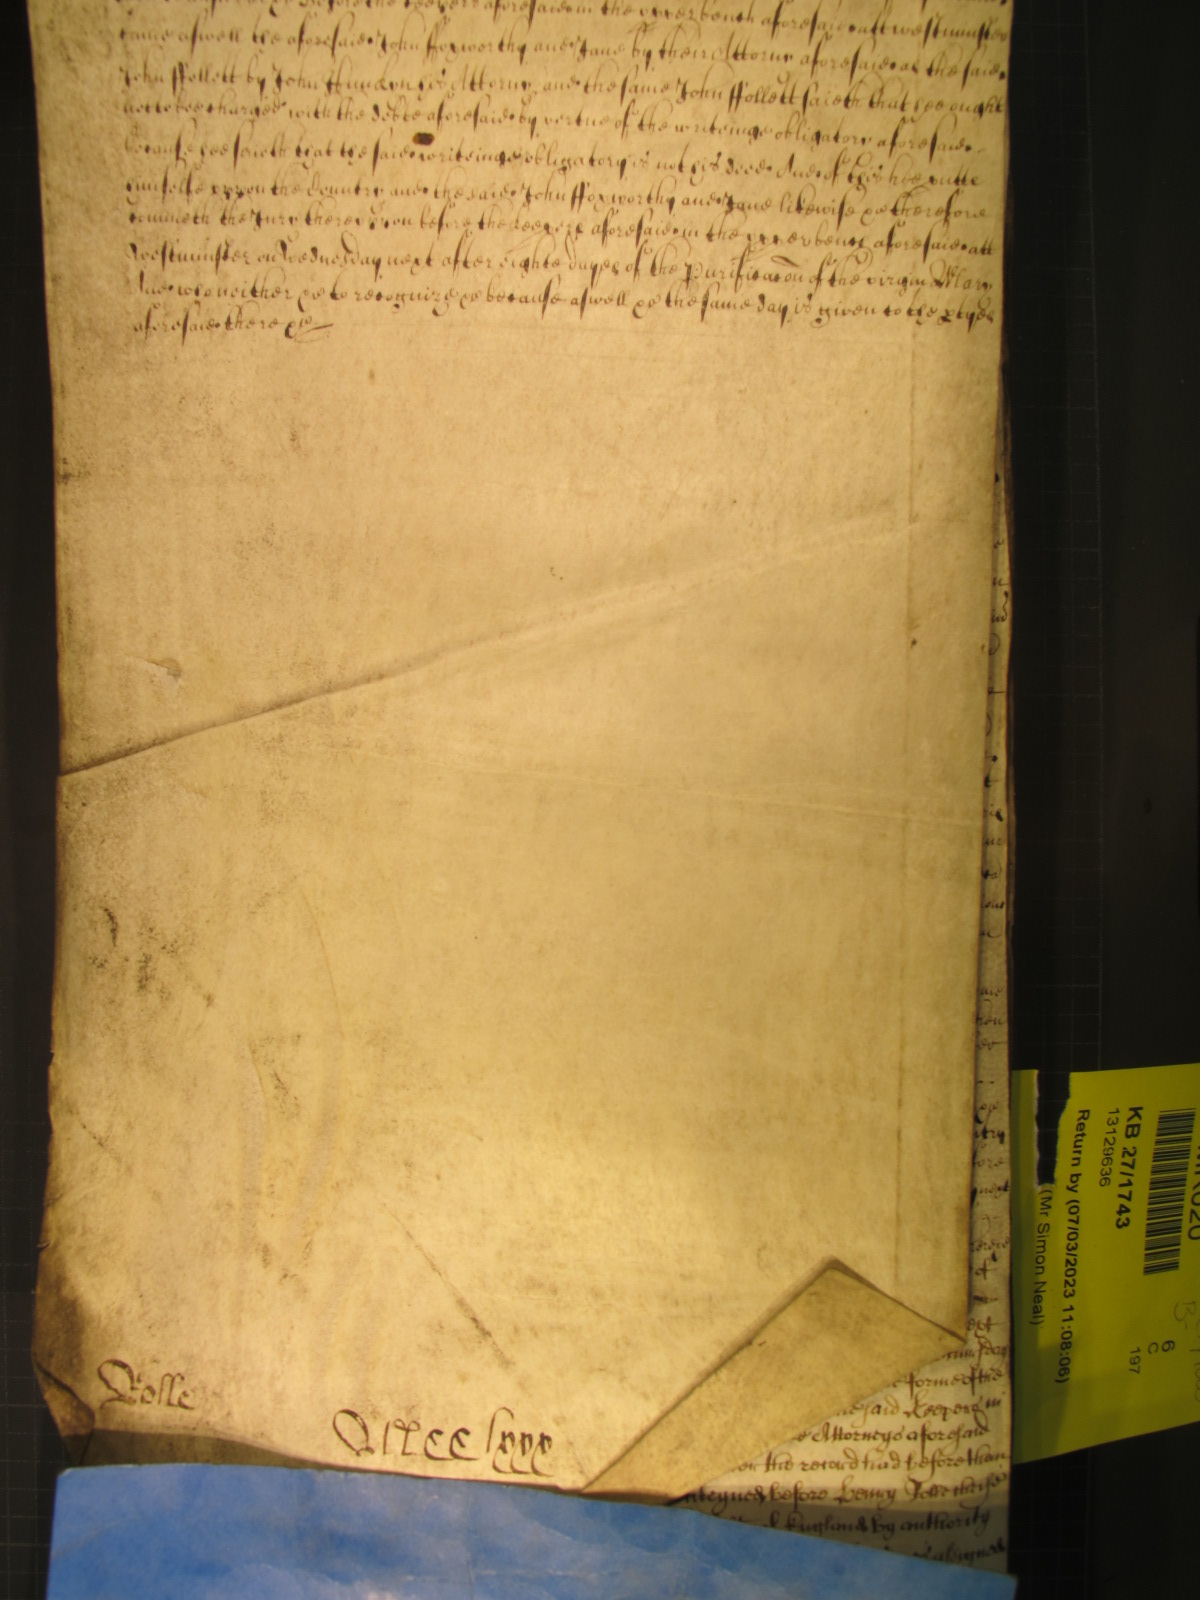 before the keepers aforesaid in the upper bench aforesaid att westminster
came aswell the aforesaid John ffoxworthy and Jane by their Attorny aforesaid as the said
John ffollett by John his Attorny and the same John ffollett saieth that hee ought
not to bee charged with the debte aforesaid by vertue of the writeinge obligatory aforesaid
because hee saieth that the said writeinge obligatory is not his deed And of this hee putte
himselfe uppon the Country and the said John ffoxworthy and Jane likewise &c therefore
cometh the Jury thereuppon before the keepers aforesaid in the upper bench aforesaid att
Westminster on Wednesday next after eighte dayes of the Purificacon of the virgin Mary
And who neither &c to recognize &c because aswell &c the same day is given to the ptyes
aforesaid there &c
Rolle
lxxx
forme of the
said Keepers in
Attorneys aforesaid
the record had before them
before Henry Rolle cheife
of England by authority
KB 27/1743
13129636
Return by (07/03/2023 11:08:06)
(Mr Simon Neal)
6
C
197